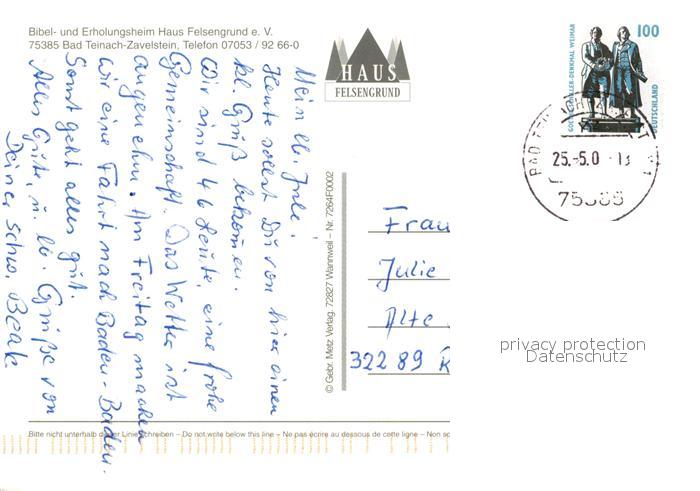 Bibel- und Erholungsheim Haus Felsengrund e. V.
75385 Bad Teinach-Zavelstein, Telefon 07053 / 92 66-0
HAUS
FELSENGRUND
GOETHE-SCHILLER-DENKMAL WEIMAR
100
DEUTSCHLAND
BAD TEINACH
25.-5.0 -13
75385
Mein lb. Jule!
Heute sollst Du von hier einen
kl. Gruß bekommen.
Wir sind 46 Leute, eine frohe
Gemeinschaft. Das Wetter ist
angenehm. Am Freitag machen
wir eine Fahrt nach Baden-Baden.
Sonst geht alles gut.
Alles Gute, u. lb. Grüße von
Deiner Schw. Beate
© Gebr. Metz Verlag, 72827 Wannweil – Nr. 7264F0002
Frau
Julie
Alte
32289 R
privacy protection
Datenschutz
Bitte nicht unterhalb dieser Linie schreiben – Do not write below this line – Ne pas écrire au dessous de cette ligne – Non sc